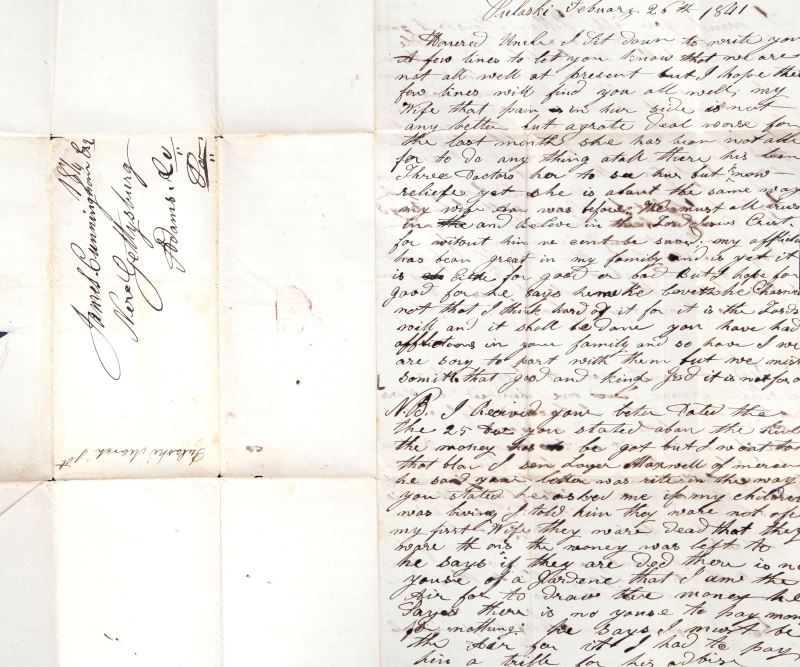 Pulaski Febuary 25th 1841
Honered Uncle I Sit down to write you
A few lines to let you know that we are
not all well at present but I hope thes
few lines will find you all well; my
Wife that pain is in her side is not
any better but a grate deal worse for
the last month she has been not all
for to do any thing atall there has been
Three Doctors her to see her but now
reliefe yet she is about the same way
my wife was before; We must all
in and believe in the Lord Jesus Crist
for witout him we cent be saved; my afflicti
has bean great in my family and is yet it
is for good or bad But I hope for
good for he says he loveth he Chasn
not that I think hard of it for it is the Lords
will and it shall be done you have had
afflictions in your family and so have I we
are sory to part with them but we mis
somith that good and kind god it is not for
N.B. I Received your leter Dated the
the 25 you stated aban the
the money to be got but I
that I sen Layer Maxwell of mercer
he said your letter was rite in the way
you stated he asked me if my children
was living I told him they ware not of
my first Wife they ware dead that they
ware th ons the money was left to
he says if they are ded there is no
youse of a Gardene that I am the
Air for to draw the money he
Sayes there is no youse to pay mon
for nothing; he says I must be
the Air for it I had to pay
him a trifle for his advis
James Cunningham Esq
18¾
Nere Gettysburg
Adams Co
Pa
Pulaski March 1st